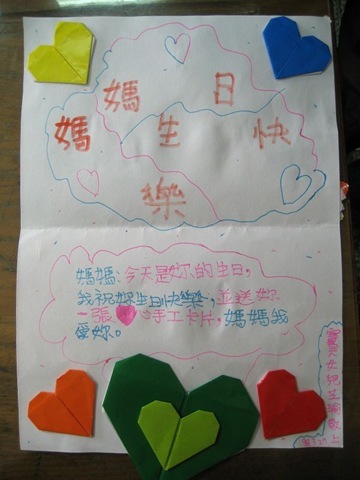 媽媽生日快
樂
媽媽:今天是妳的生日,
我祝妳生日快樂,並送妳
一張心手工卡片,媽媽我
愛妳。
寶貝女兒敬上